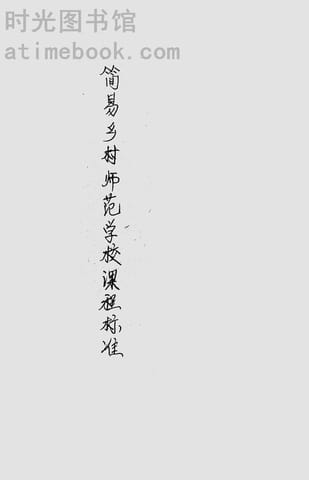 时光图书馆
atimebook.com
简易乡村师范学校课程标准